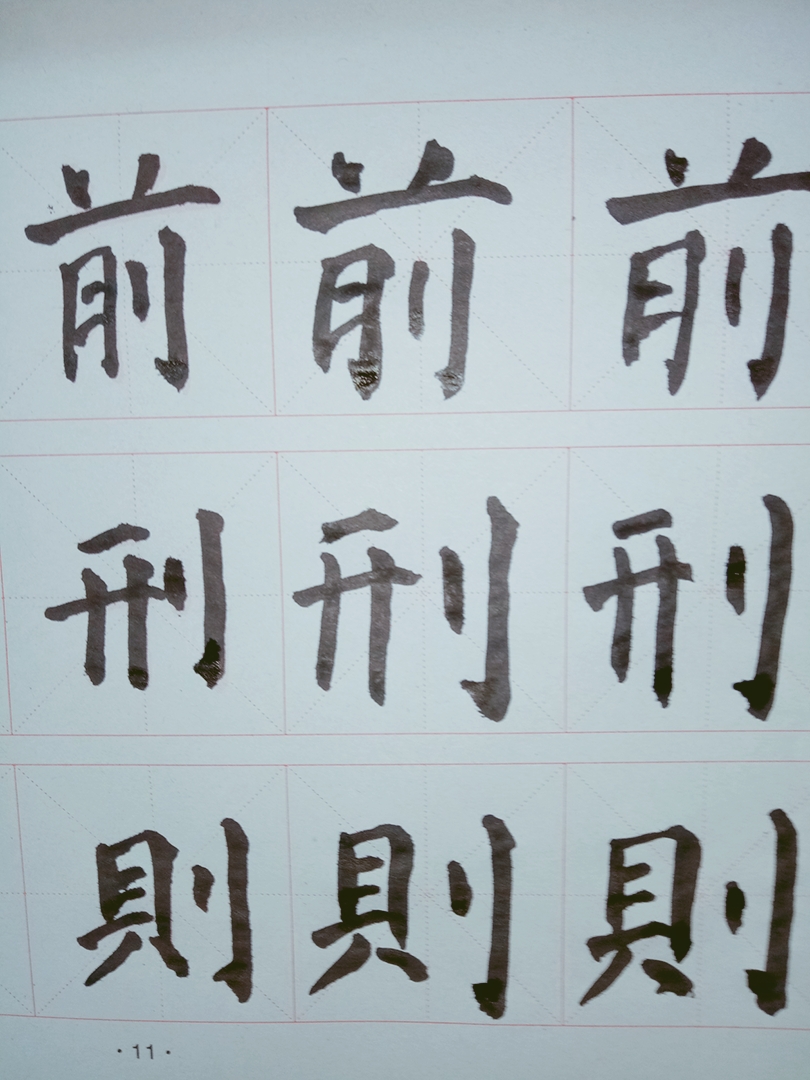 前前前
刑刑刑
則則則
·11·